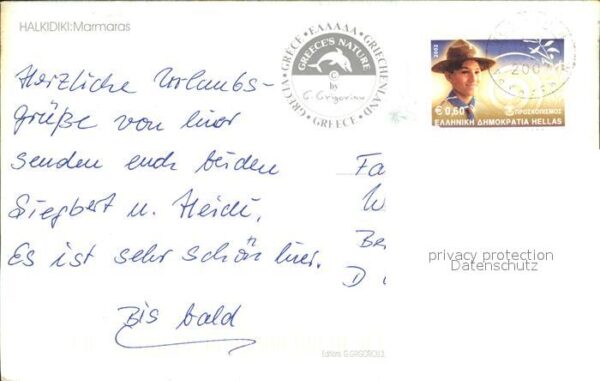 HALKIDIKI:Marmaras
GRÈCE • ΕΛΛΑΔΑ • GRIECHENLAND • GREECE • GRECIA
GREECE'S NATURE
©
by
G. Grigoriou
2002
€ 0,60
ΠΡΟΣΚΟΠΙΣΜΟΣ
ΕΛΛΗΝΙΚΗ ΔΗΜΟΚΡΑΤΙΑ HELLAS
Herzliche Urlaubs-
grüße von hier
senden euch beiden
Siegbert u. Heidi.
Es ist sehr schön hier.
Bis bald
Fa
W
Be
D
privacy protection
Datenschutz
Editions G.GRIGORIOU